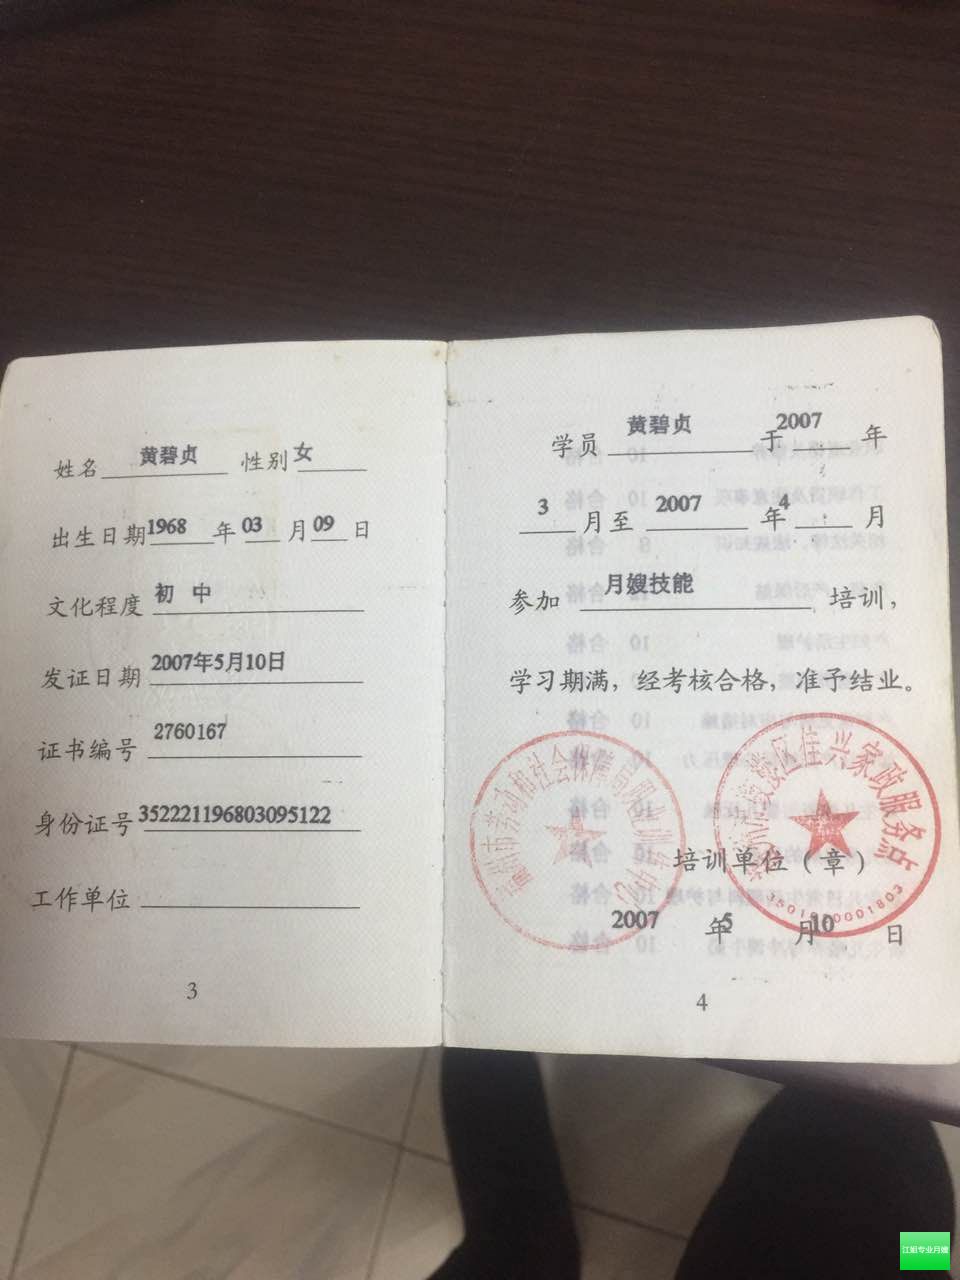 姓名 黄碧贞 性别 女
出生日期 1968 年 03 月 09 日
文化程度 初 中
发证日期 2007年5月10日
证书编号 2760167
身份证号 352221196803095122
工作单位
3
学员 黄碧贞 于 2007 年
3 月至 2007 年 4 月
参加 月嫂技能 培训，
学习期满，经考核合格，准予结业。
市劳动和社会保障局
区佳兴家政服务店
培训单位（章）
2007 年 5 月 10 日
4
江姐专业月嫂